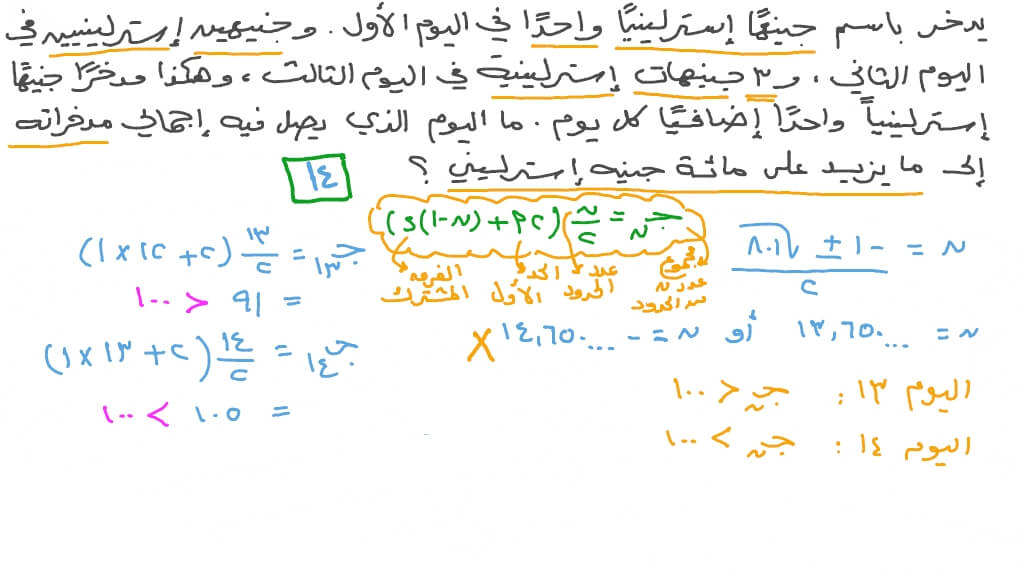 يدخر باسم جنيهًا إسترلينيًا واحدًا في اليوم الأول. وجنيهين إسترلينيين في
اليوم الثاني، و٣ جنيهات إسترلينية في اليوم الثالث، وهكذا مدخرًا جنيهًا
إسترلينياً واحدًا إضافيًا كل يوم. ما اليوم الذي يصل فيه إجمالي مدخراته
إلى ما يزيد على مائة جنيه إسترليني؟
١٤
جـن = ن/٢ (٢أ + (ن-١)د)
مجموع عدد ن من الحدود
عدد الحدود
الحد الأول
الفرق المشترك
ن = (-١ ± √٨٠١)/٢
ن = ١٣,٦٥٠... أو ن = -١٤,٦٥٠... X
اليوم ١٣: جـن < ١٠٠
اليوم ١٤: جـن > ١٠٠
جـ١٣ = ١٣/٢ (٢ + ١٢ × ١)
= ٩١ < ١٠٠
جـ١٤ = ١٤/٢ (٢ + ١٣ × ١)
= ١٠٥ > ١٠٠